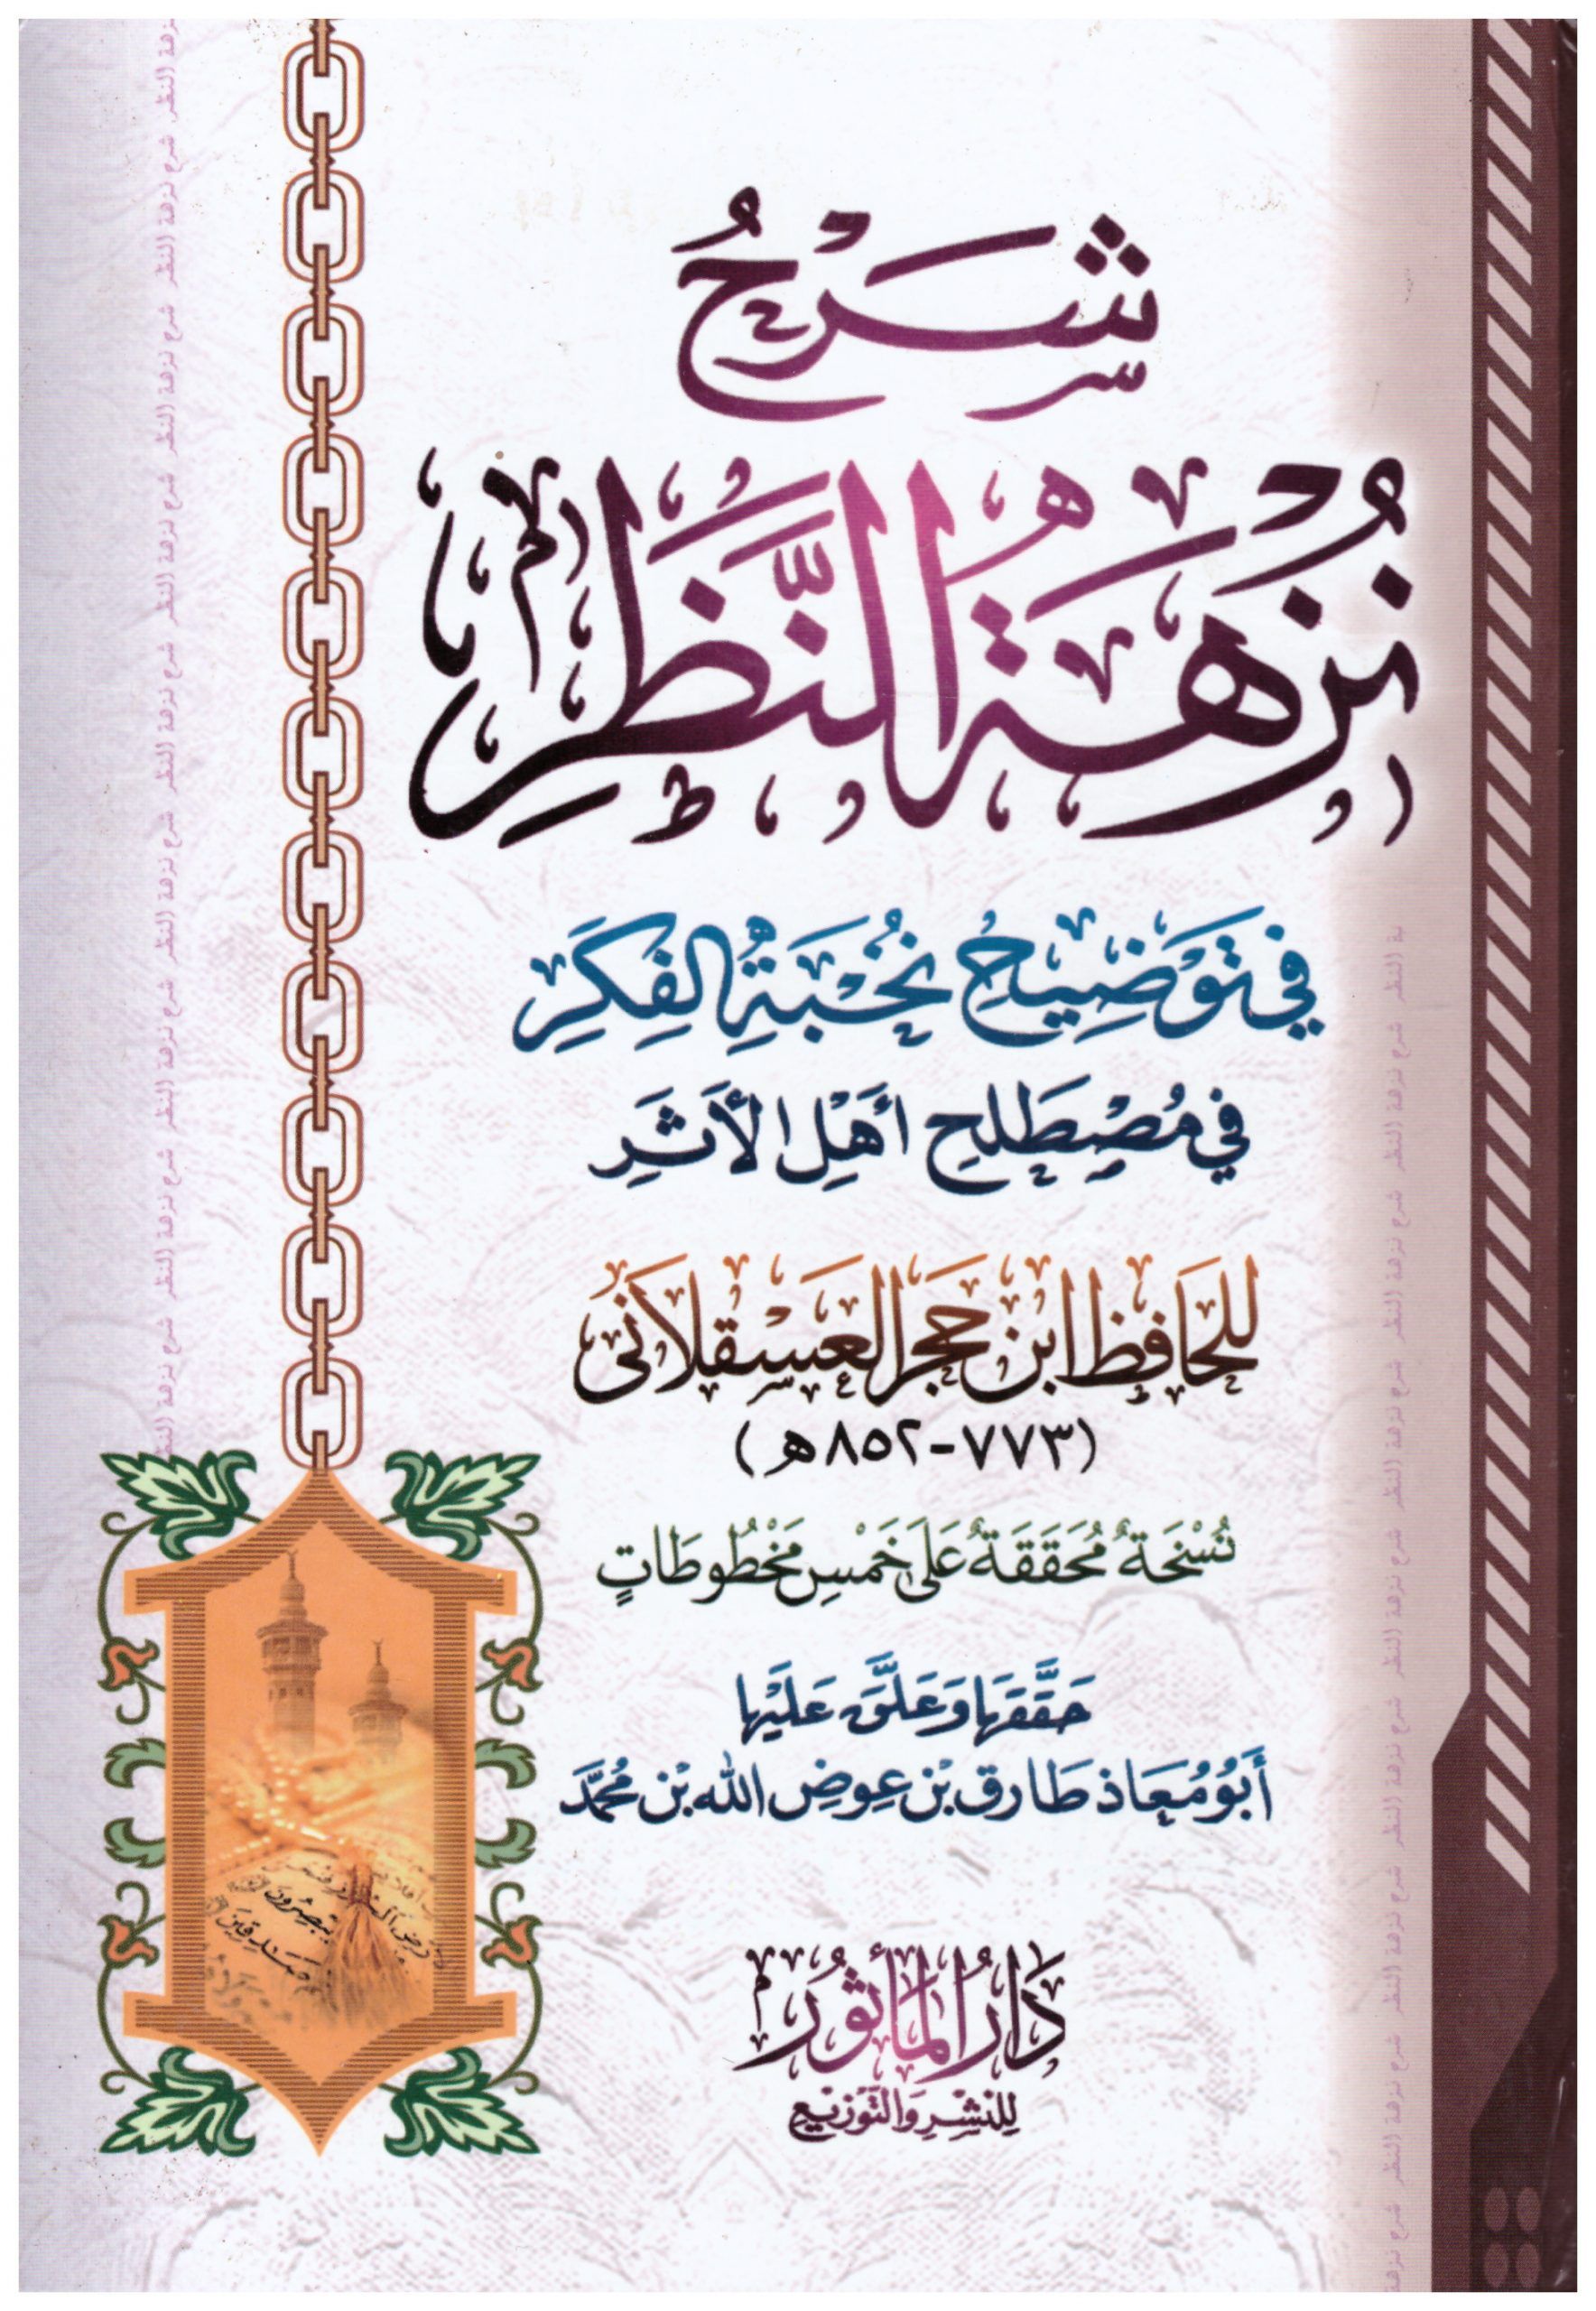 شَرْحُ
نُزْهَةُ النَّظَرِ
في تَوْضِيحِ نُخْبَةِ الفِكَرِ
في مُصْطَلحِ أهْلِ الأَثَرِ
للحَافِظ ابن حَجَر العَسْقلاَنى
(٧٧٣-٨٥٢ هـ)
نُسْخَةٌ مُحَقَقَةٌ عَلَى خَمْسِ مَخْطُوطَاتٍ
حَقَّقَهَا وَعَلَّقَ عَلَيْهَا
أَبُو مُعَاذ طَارق بْن عِوضِ الله بْن مُحَمَّد
دَارُ المَأثُور
لِلنَشْرِ وَالتَّوْزيْع